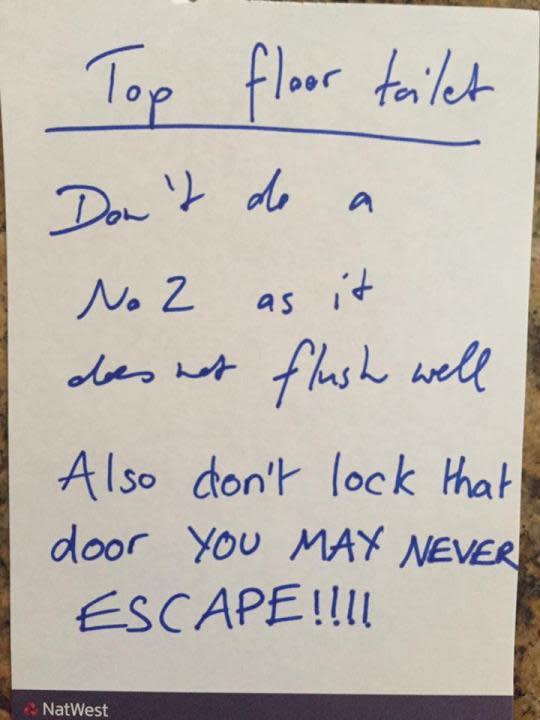 Top floor toilet
Don't do a
No 2 as it
does not flush well
Also don't lock that
door YOU MAY NEVER
ESCAPE!!!!
NatWest